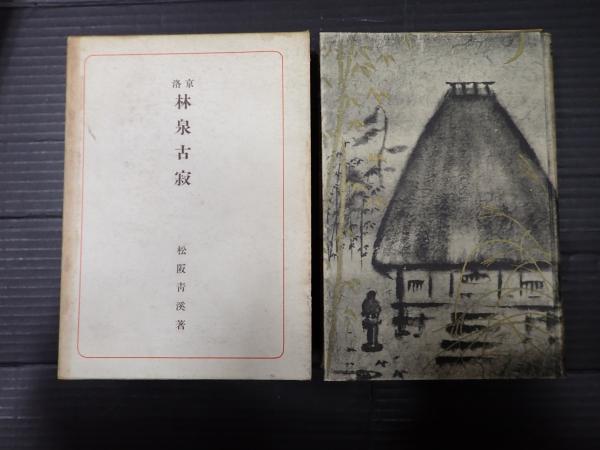 京洛
林泉古寂
松阪青溪著